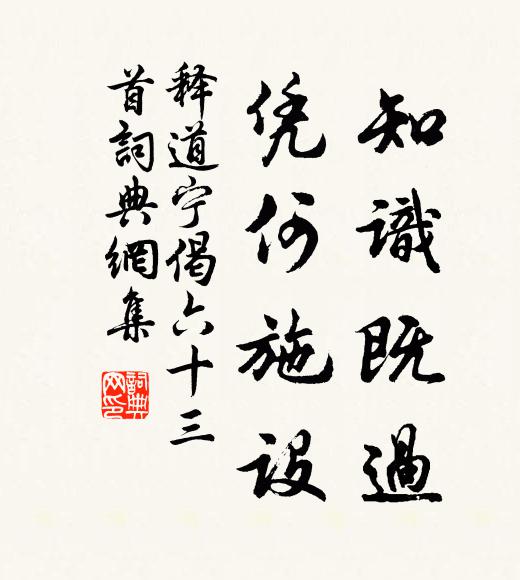 知識既過
凭何施設
释道宁偈六十三
首詞典網集
詞典
网印